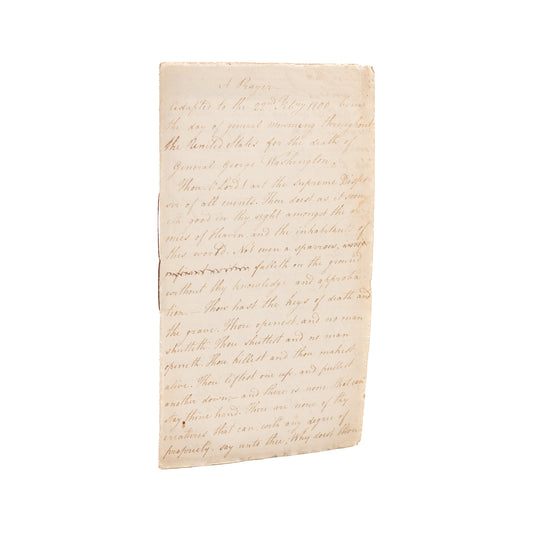 A Prayer
Adapted to the 22nd Feby 1800, being
the day of general mourning throughout
the United States for the death of
General George Washington.
Thou O Lord! art the supreme Dispo
ser of all events. Thou doest as it seem
eth good in thy sight amongst the ar
mies of Heaven and the inhabitants of
this world. Not even a sparrow,
falleth on the ground
without thy knowledge and approba
tion. — Thou hast the keys of death and
the grave. Thou openest, and no man
shutteth. Thou shuttest and no man
openeth. Thou killest and thou makest
alive. Thou liftest one up and pullest
another down, and there is none that can
stay thine hand. There are none of thy
creatures that can with any degree of
propriety, say unto thee, Why doest thou